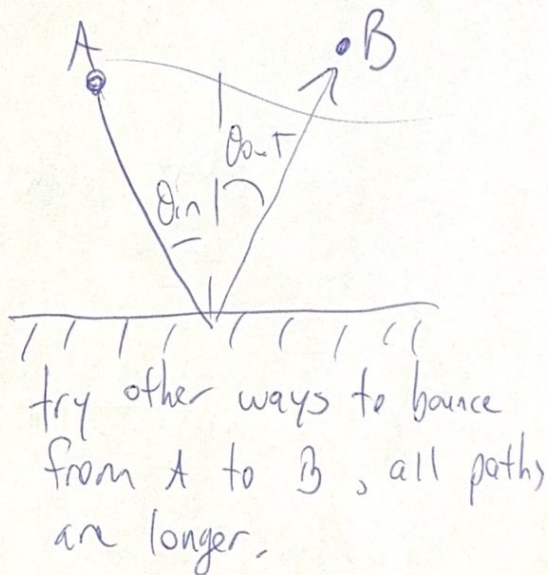 A
B
θout
θin
try other ways to bounce
from A to B, all paths
are longer.